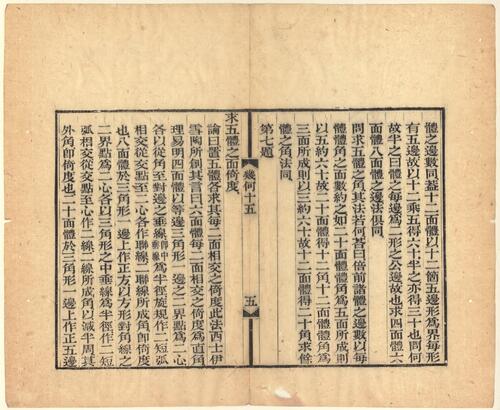 體之邊數同蓋十二面體以十二箇五邊形爲界每形
有五邊故以十二乘五得六十半之亦得三十也問何
故半之曰體之每邊爲二形之公邊故也求四面體六
面體八面體之邊法俱同
問求五體之角其法若何荅曰倍前諸體之邊數以每
體體角之面數約之如二十面體體角爲五面所成則
以五約六十故二十面體得十二角十二面體體角爲
三面所成則以三約六十故十二面體得二十角求餘
體之角法同
第七題
幾何十五
五
求五體之面倚度
論曰置五體各求其每二面相交之倚度此法西士伊
雪陶所創其言曰六面體每二面相交之倚度爲直角
理易明四面體以等邊三角形一邊之二界點爲二心
各以從角至對邊之垂線即中垂線爲半徑旋規作二短弧
相交從交點至二心各作聯線二聯線所成角即倚度
也八面體於三角形一邊上作正方以方形對角線之
二界點爲二心各以三角形之中垂線爲半徑作二短
弧相交從交點至二心作二線二線所成角以減半周其
外角即倚度也二十面體於三角形一邊上作正五邊